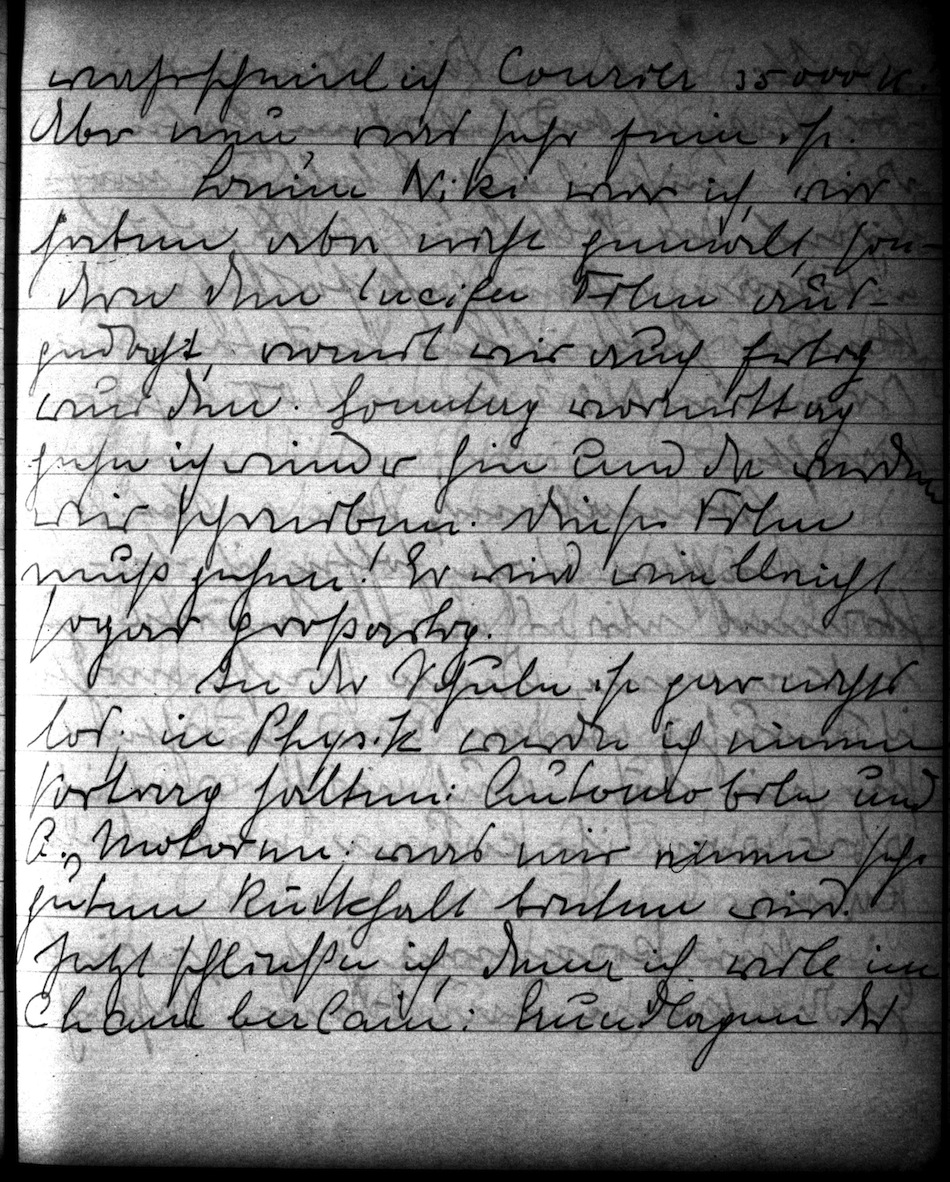 wahrscheinlich Courier 35000 K.
Aber neu, was sehr fein ist.
Beim Niki war ich, wir
haben aber nicht gemalt, son-
dern den Lucifer Film aus-
gedacht, womit wir auch fertig
wurden. Sonntag vormittag
gehe ich wieder hin und da werden
wir schreiben. Dieser Film
muß gehen! Er wird vielleicht
sogar großartig.
In der Schule ist gar nichts
los, in Physik werde ich einen
Vortrag halten: Automobile und
A. Motoren, was mir einen sehr
guten Rückhalt bieten wird.
Jetzt schließe ich, denn ich will im
Chamberlain: Grundlagen des